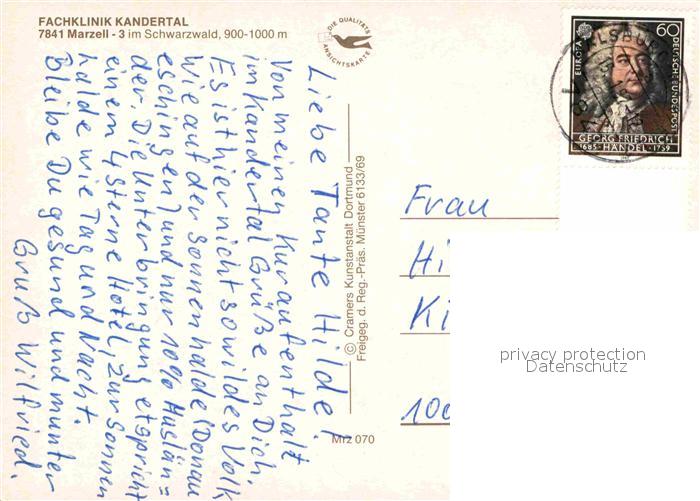 FACHKLINIK KANDERTAL
7841 Marzell - 3 im Schwarzwald, 900-1000 m
DIE QUALITÄTS
ANSICHTSKARTE
Liebe Tante Hilde!
Von meinen Kuraufenthalt
im Kandertal Grüße an Dich.
Es ist hier nicht so wildes Volk
wie auf der Sonnenhalde (Donau
eschingen) und nur 10% Auslän=
der. Die Unterbringung etspricht
einem 4 Sterne Hotel, zur Sonnen
halde wie Tag und Nacht.
Bleibe Du gesund und munter
Gruß Wilfried.
© Cramers Kunstanstalt Dortmund
Freigeg. d. Reg.-Präs. Münster 6133/69
Mrz 070
EUROPA
60
DEUTSCHE BUNDESPOST
GEORG FRIEDRICH
1685 · HÄNDEL · 1759
Frau
Hi
Ki
100
privacy protection
Datenschutz